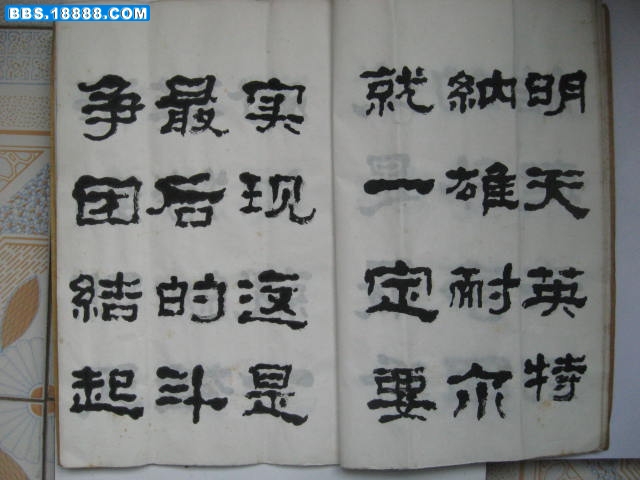 BBS.18888.COM
明天英特
納雄耐尔
就一定要
实现这是
最后的斗
争团結起